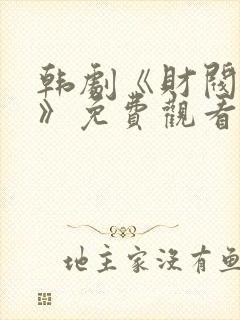 韩劇《財閥
》免費觀看
地主家沒有魚